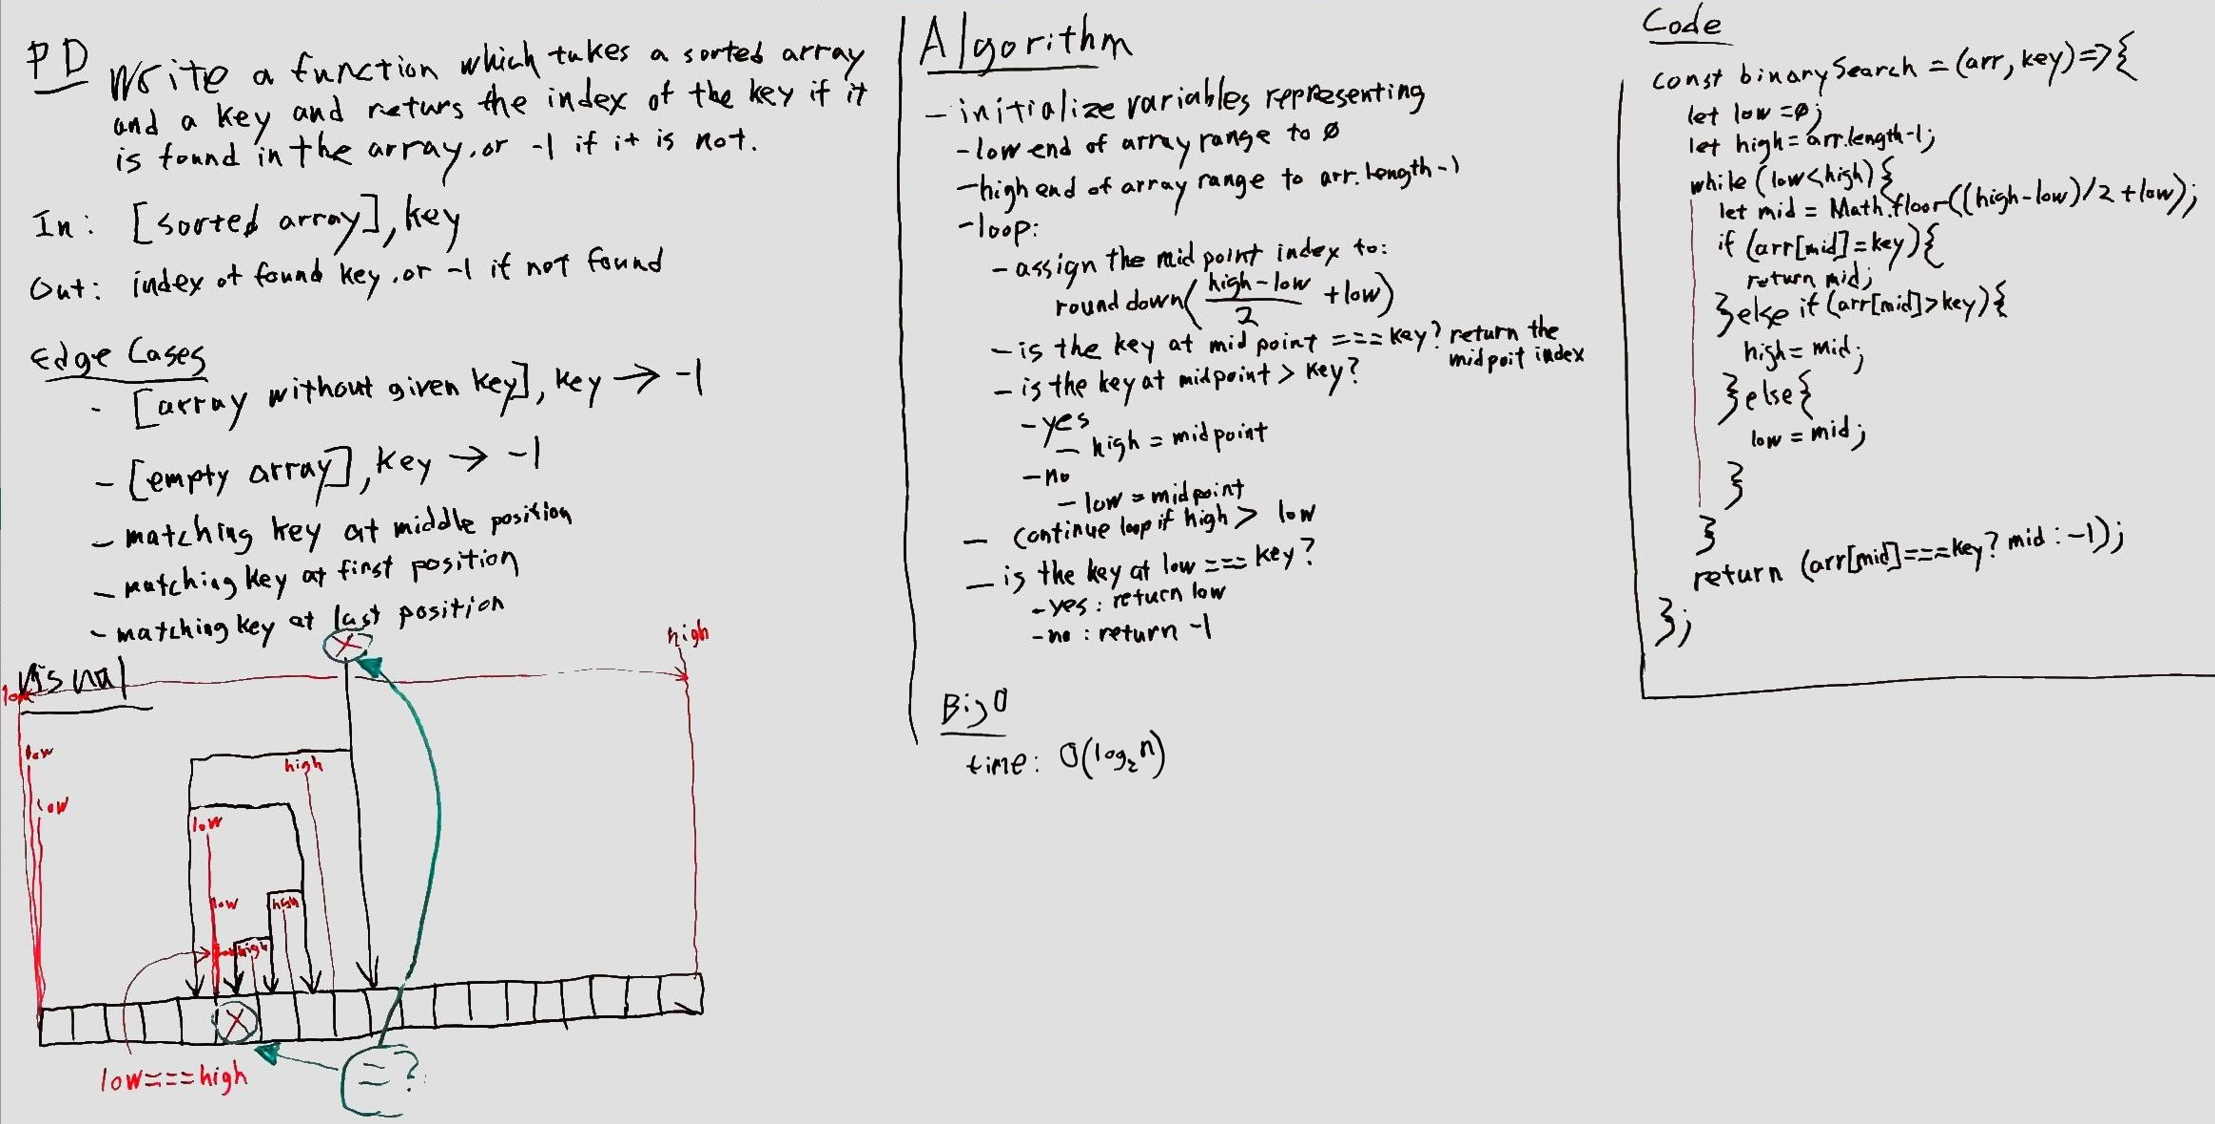 PD
Write a function which takes a sorted array
and a key and returs the index of the key if it
is found in the array, or -1 if it is not.
In: [sorted array], key
Out: index of found key, or -1 if not found
Edge Cases
- [array without given key], key → -1
- [empty array], key → -1
- matching key at middle position
- matching key at first position
- matching key at last position
Visual
low
high
low
high
low
low
low
high
high
low===high
=?
Algorithm
- initialize variables representing
- low end of array range to 0
- high end of array range to arr.length-1
- loop:
- assign the mid point index to:
round down(high-low/2 + low)
- is the key at mid point === key? return the
midpoit index
- is the key at midpoint > key?
- yes
- high = midpoint
- no
- low = midpoint
- continue loop if high > low
- is the key at low === key?
- yes: return low
- no: return -1
Big O
time: O(log₂n)
Code
const binarySearch = (arr, key) => {
let low = 0;
let high = arr.length-1;
while (low < high) {
let mid = Math.floor((high-low)/2 + low);
if (arr[mid]=key){
return mid;
}else if (arr[mid]>key){
high = mid;
}else{
low = mid;
}
}
return (arr[mid]===key? mid : -1);
};